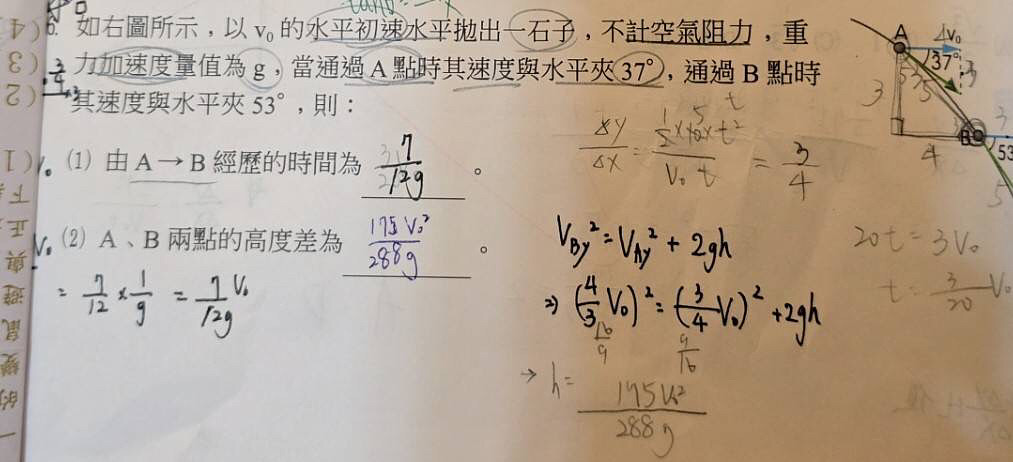 6. 如右圖所示，以 v₀ 的水平初速水平拋出一石子，不計空氣阻力，重
力加速度量值為 g，當通過 A 點時其速度與水平夾 37°，通過 B 點時
其速度與水平夾 53°，則：
(1) 由 A → B 經歷的時間為 7/12g 。
(2) A、B 兩點的高度差為 175 V₀²/288g 。
= 7/12 × 1/g = 7/12g V₀
ΔY/ΔX = = 3/4
V₀ t
V_By² = V_Ay² + 2gh
⇒ (4/3 V₀)² = (3/4 V₀)² + 2gh
16/9
9/16
→ h = 175V₀²/288g
20t = 3V₀
t = 3/20 V₀
A
37°
53
3
5
4
B
53